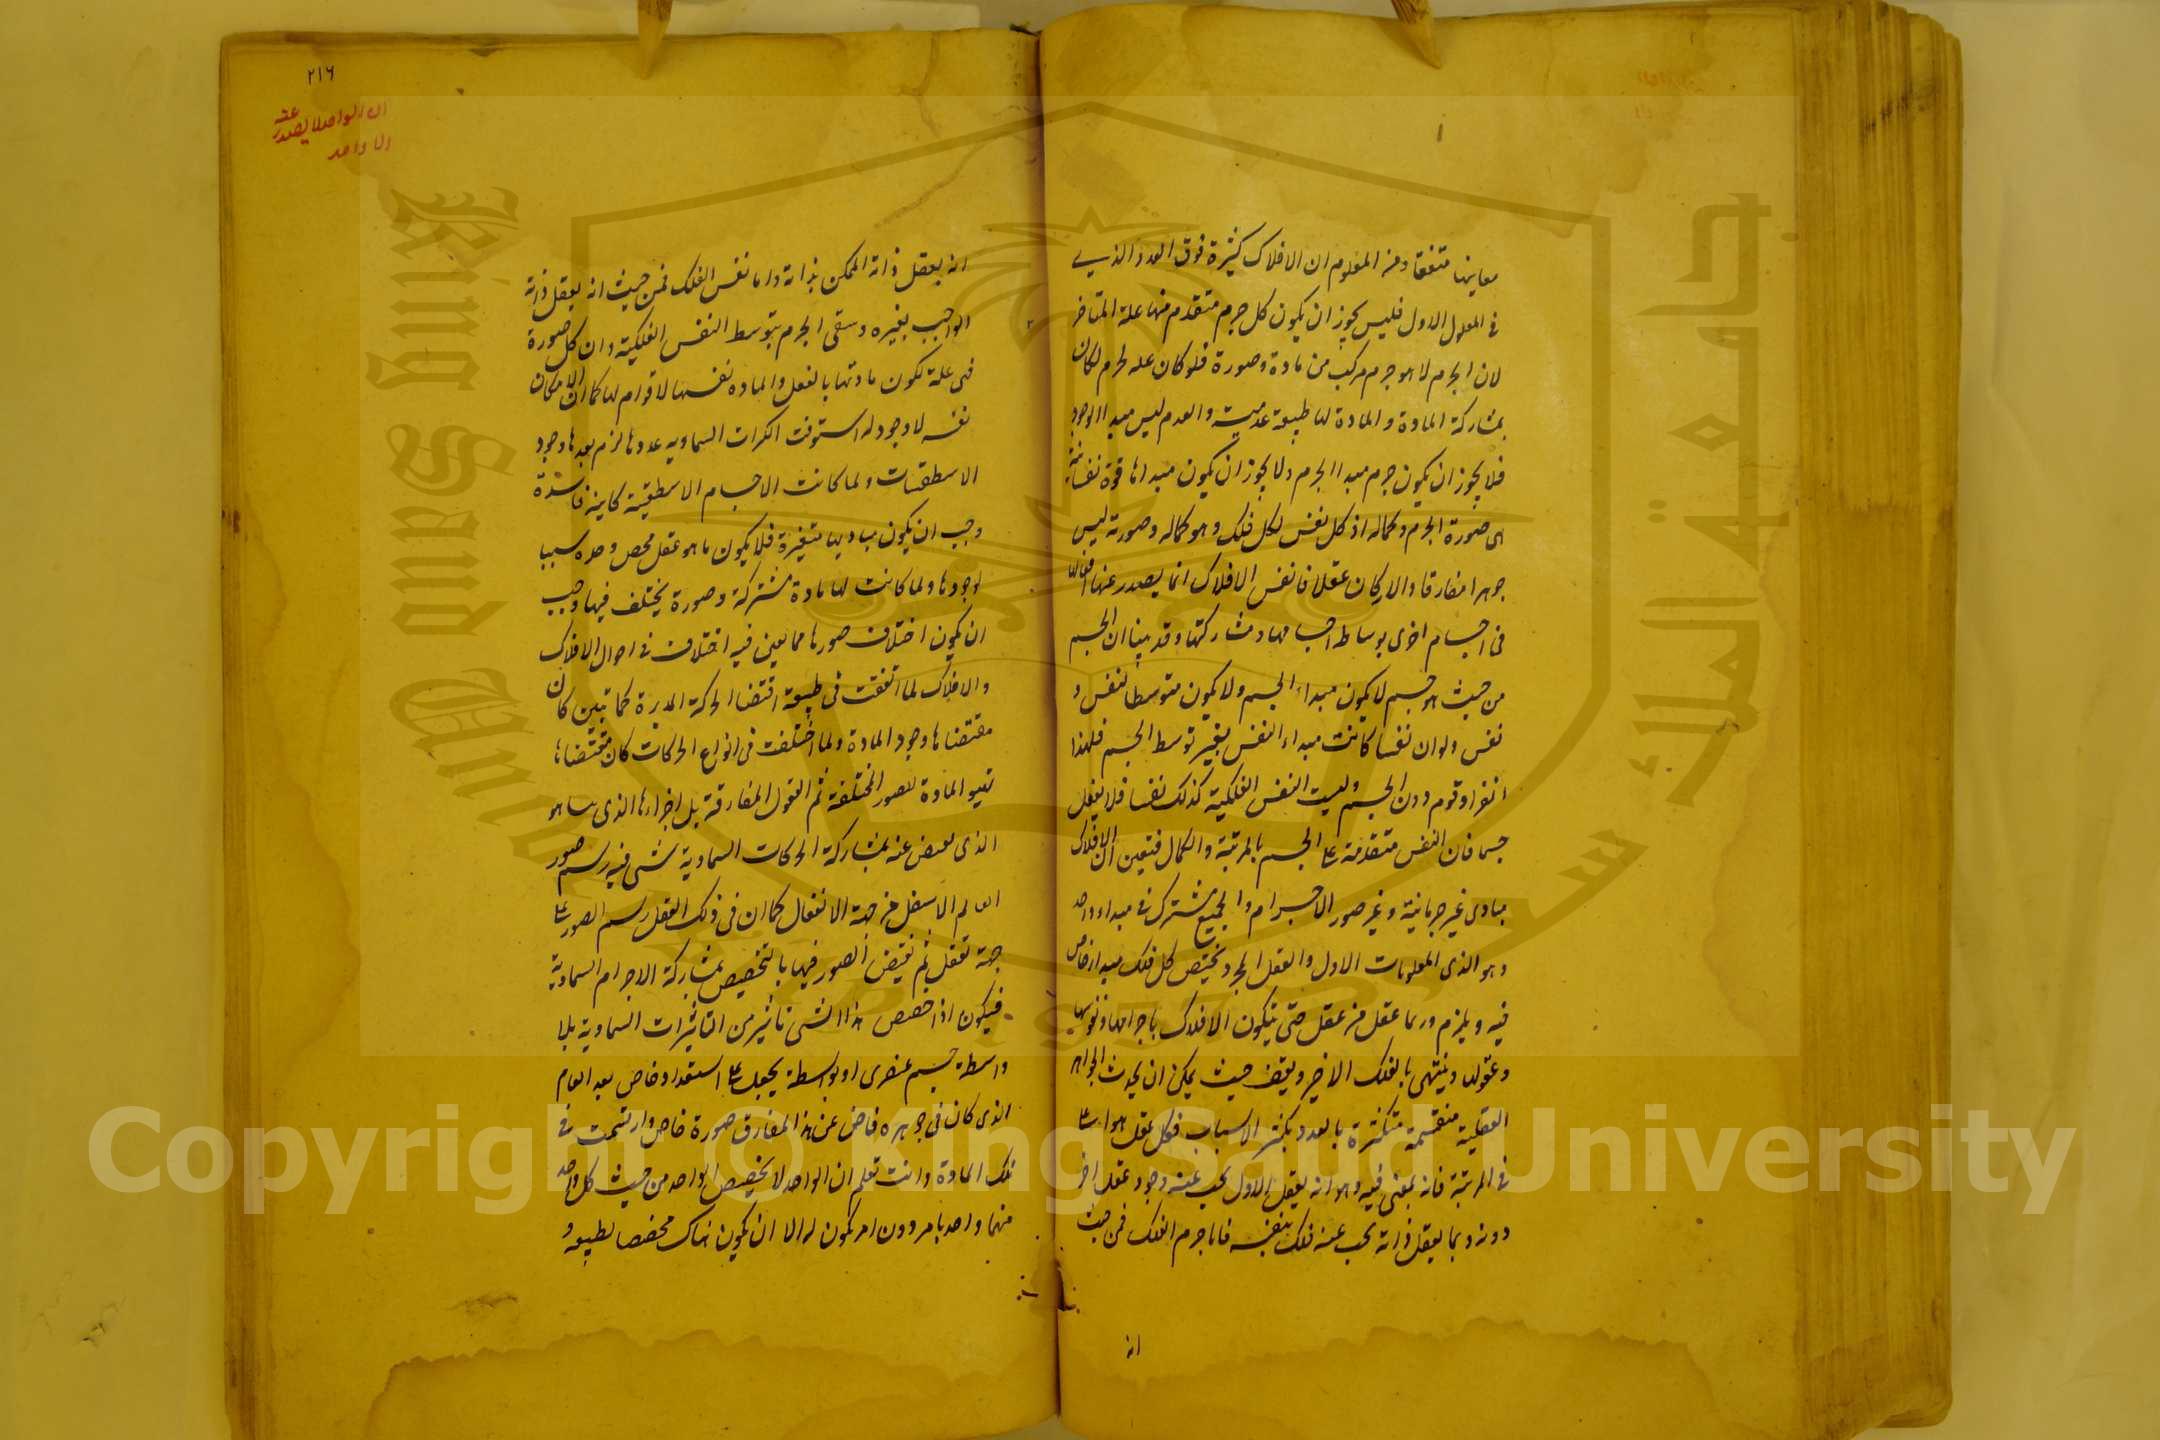 معاينها متفقا ومن المعلوم ان الافلاك كثيرة فوق العدد الذي
في المعلول الاول فليس يجوز ان يكون كل جرم متقدم منها علة المتاخر
لان الجرم لا هو جرم مركب من مادة وصورة فلو كان علة لجرم لكان
بمشاركة المادة والمادة لها طبيعة عدمية والعدم ليس مبدا الوجود
فلا يجوز ان يكون جرم مبدا الجرم ولا يجوز ان يكون مبداها قوة نفسانية
هي صورة الجرم وكماله اذ كل نفس لكل فلك وهو كماله وصورته ليس
جوهرا مفارقا والا كان عقلا فانفس الافلاك انما يصدر عنها افعالها
في اجسام اخرى بوساطة اجسامها ومشاركتها وقد بينا ان الجسم
من حيث هو جسم لا يكون مبداء الجسم ولا يكون متوسطا لنفس و
نفس ولو ان نفسا كانت مبداء النفس بغير توسط الجسم فلهذا
انفراد قوم دون الجسم وليست النفس الفلكية كذلك نفسا فلا يفعل
جسما فان النفس متقدمة على الجسم بالمرتبة والكمال فتعين ان للافلاك
مبادي غير جرمانية وغير صور الاجرام والجميع مشترك في مبداء واحد
وهو الذي المعلومات الاول والعقل المجرد تختص كل فلك مبداء خاص
فيه ويلزم وربما عقل من عقل حتى يتكون الافلاك باجرامها ونفوسها
وعقولها وينتهي بالفلك الاخير ويقف حيث يمكن ان يحدث الجواهر
العقلية منقسمة متكثرة بالعدد بكثر الاسباب فكل عقل هو اعلى
في المرتبة فانه بمعنى فيه وهو انه يعقل الاول يجب عنه وجود عقل اخر
دونه وبما يعقل ذاته يجب عنه فلك بنفسه فاما جرم الفلك فمن حيث
انه
٢١٦
ان الواحد لا يصدر عنه
الا واحد
انه يعقل ذاته الممكن بذاته واما نفس الفلك فمن حيث انه يعقل ذاته
الواجب بغيره وسقى الجرم بتوسط النفس الفلكية وان كل صورة
فهي علة لكون مادتها بالفعل والمادة نفسها لا قوام لها كما ان الامكان
نفسه لا وجود له استوفت الكرات السماوية عددها لزم بعدها وجود
الاسطقسات ولما كانت الاجسام الاسطقسية كاينة فاسدة
وجب ان يكون مباديها متغيرة فلا يكون ما هو عقل محض وحده سببا
لوجودها ولما كانت لها مادة مشتركة وصورة يختلف فيها وجب
ان يكون اختلاف صورها مما يعين فيه اختلاف في احوال الافلاك
والافلاك لما اتفقت في طبيعة اقتضا الحركة المديرة كما تبين كان
مقتضاها وجود المادة ولما اختلفت في انواع الحركات كان مقتضاها
تهيو المادة للصور المختلفة ثم العقول المفارقة بل اخراها الذي ساهو
الذي يفيض عنه بمشاركة الحركات السماوية شي فيه رسم صور
العالم الاسفل من جهة الانفعال كما ان في ذلك العقل رسم الصور على
جهة تعقل ثم تفيض الصور فيها بالتخصيص بمشاركة الاجرام السماوية
فيكون اذا خصص هذا الشي تاثير من التاثيرات السماوية بلا
واسطة جسم عنصري او بواسطة يجعله على استعداد خاص بعد العام
الذي كان في جوهره فاض عن هذا المفارق صورة خاص وارتسمت في
تلك المادة وانت تعلم ان الواحد لا يخصص الواحد من حيث كل واحد
منهما واحد بامر دون امر يكون له الا ان يكون هناك مخصصا لطبيعة و
Copyright © King Saud University
King Saud University
جامعة الملك سعود
1957